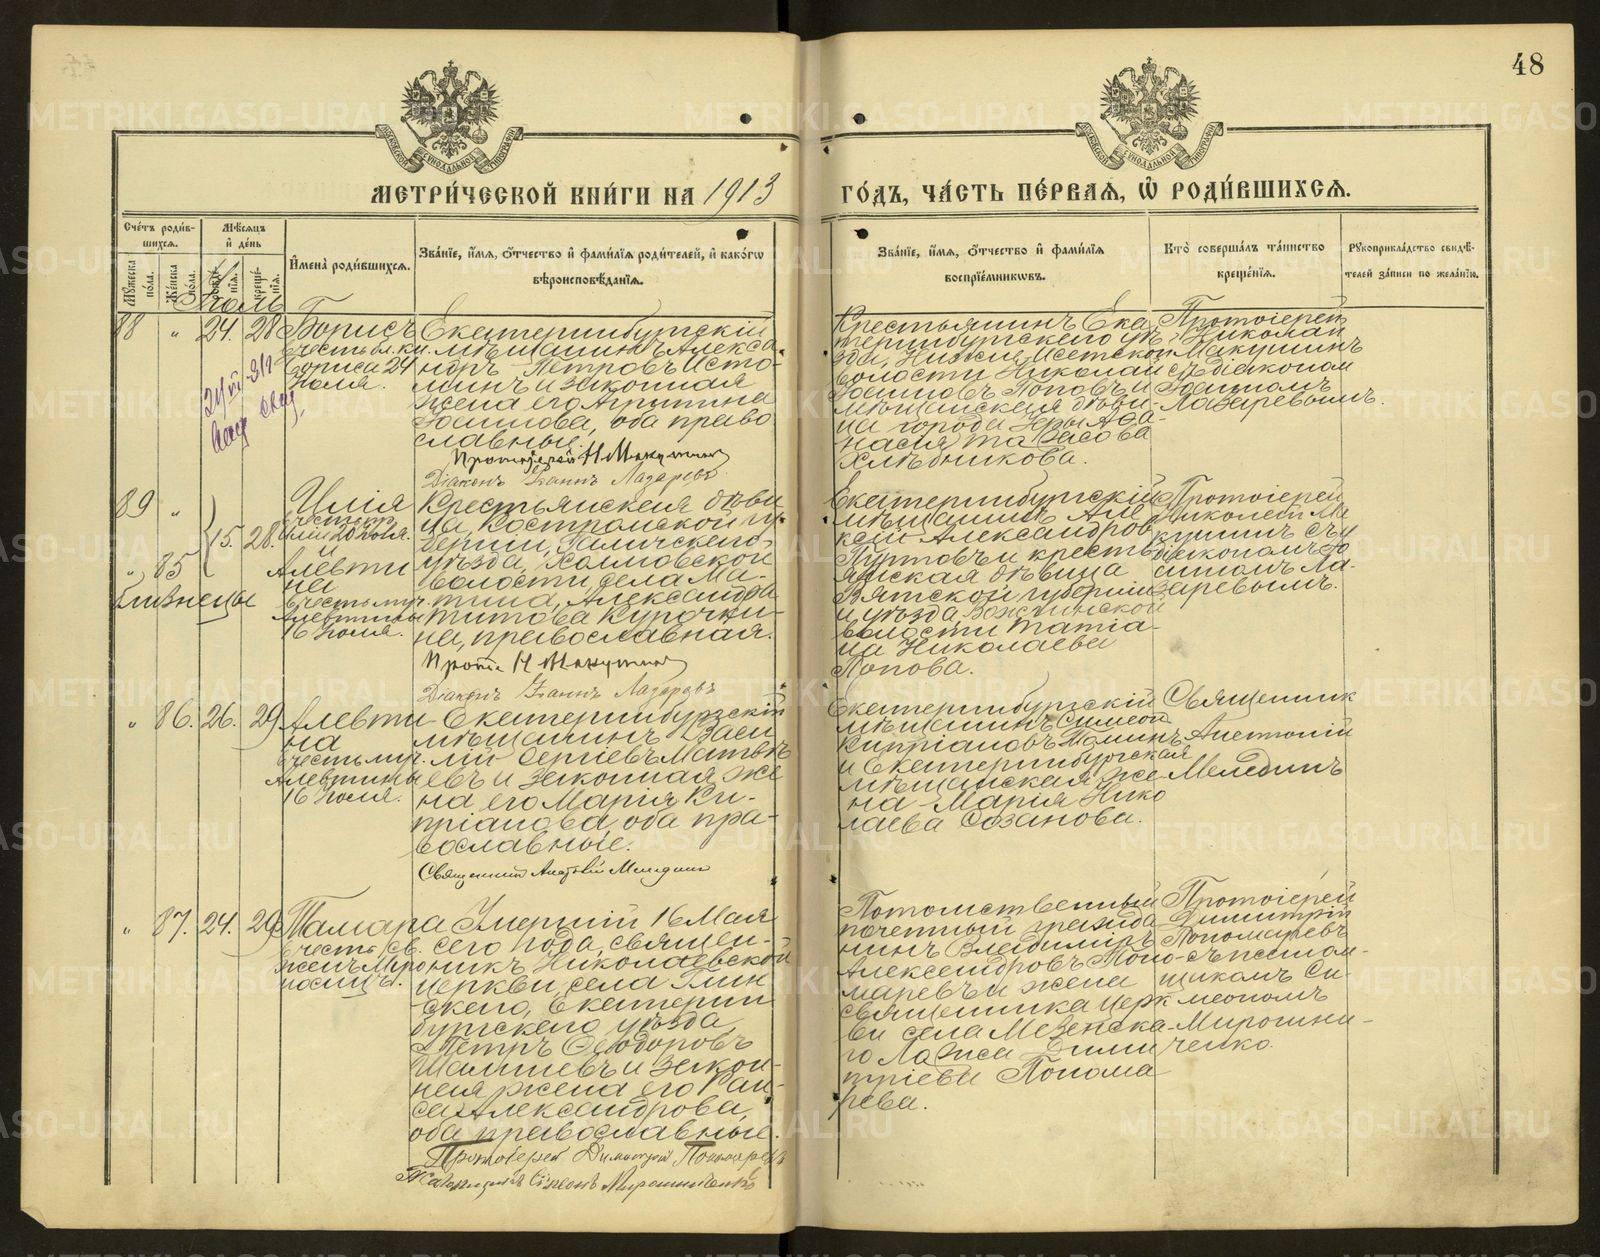 48
МЕТРИ́ЧЕСКОЙ КНИ́ГИ НА 1913
ГО́ДЪ, ЧА́СТЬ ПЕ́РВАЯ, Ѿ РОДИ́ВШИХСЯ.
Сче́тъ роди́в-
шихся.
Мѣ́сяцъ
и де́нь
Му́жеска по́ла.
Же́нска по́ла.
рожде́нія.
креще́нія.
Имена̀ роди́вшихся.
Зва́ніе, и́мя, о́тчество и фами́лія роди́телей, и како́гѡ
вѣроисповѣ́данія.
Зва́ніе, и́мя, о́тчество и фами́лія
воспріе́мниковъ.
Кто̀ соверша́лъ та́инство
креще́нія.
Рꙋкоприкла́дство свидѣ́-
телей за́писи по жела́нію.
Іюль
88 " 24. 28
Борисъ
въ честь бл. кн.
Бориса 24
Іюля.
Екатеринбургскій
мѣщанинъ Алекса-
ндръ Петровъ Исто-
минъ и законная
жена его Агрипина
Іоаннова, оба право
славные.
Протоіерей Н. Макушинъ
Діаконъ Іоаннъ Лазаревъ
Крестьянинъ Ека
теринбургскаго уѣ
зда, Нижне Исетской
волости Николай
Іоанновъ Поповъ и
мѣщанская дѣви-
ца города
Хлѣбникова.
Протоіерей
Николай
Макушинъ
съ діакономъ
Іоанномъ
Лазаревымъ.
89 "
" 85
близнецы
15. 28.
Илія
въ честь пр.
Иліи 20 Іюля.
и
Алевти
на
въ честь муч.
Алевтины
16 Іюля.
Крестьянская дѣви
ца, Костромской гу-
берніи, Галичскаго
уѣзда,
волости, села Ма-
тина, Александра
Титова Курочки-
на, православная.
Прот. Н. Макушинъ
Діаконъ Іоаннъ Лазаревъ
Екатеринбургскій
мѣщанинъ Але
ксѣй Александров
Пуртовъ и кресть
янская дѣвица
Вятской губерніи
и уѣзда,
волости Татіа-
на Николаева
Попова.
Протоіерей
Николай Ма
кушинъ съ
діакономъ Іо
анномъ Ла-
заревымъ.
" 86. 26. 29
Алевти-
на
въ честь муч.
Алевтины
16 Іюля.
Екатеринбургскій
мѣщанинъ Васи
лій Сергіевъ Матвѣ
евъ и законная же
на его Марія Ки-
пріанова, оба пра-
вославные.
Священникъ Анатолій Меледин
Екатеринбургскій
мѣщанинъ Симеон
Кипріановъ
и Екатеринбургская
мѣщанская же-
на Марія Нико
лаева Созанова.
Священник
Анатолій
Мелединъ
" 87. 24. 29
Тамара
въ честь св.
женъ Миро
носицъ.
Умершій 16 Мая
сего года, священ-
никъ Николаевской
церкви, села Глин
скаго, Екатерин
бургскаго уѣзда,
Петръ Ѳеодоровъ
и закон-
ная жена его Раи-
са Александрова,
оба православные.
Протоіерей Димитрій Пономаревъ
Псаломщикъ Симеонъ Мирошниченко
Потомственный
почетный гражда
нинъ Владиміръ
Александровъ Поно-
маревъ и жена
священника церк
ви села Мезенска-
го Лариса Дими
тріева Понома
рева.
Протоіерей
Димитрій
Пономаревъ
съ псалом-
щикомъ Си-
меономъ
Мирошни-
ченко.